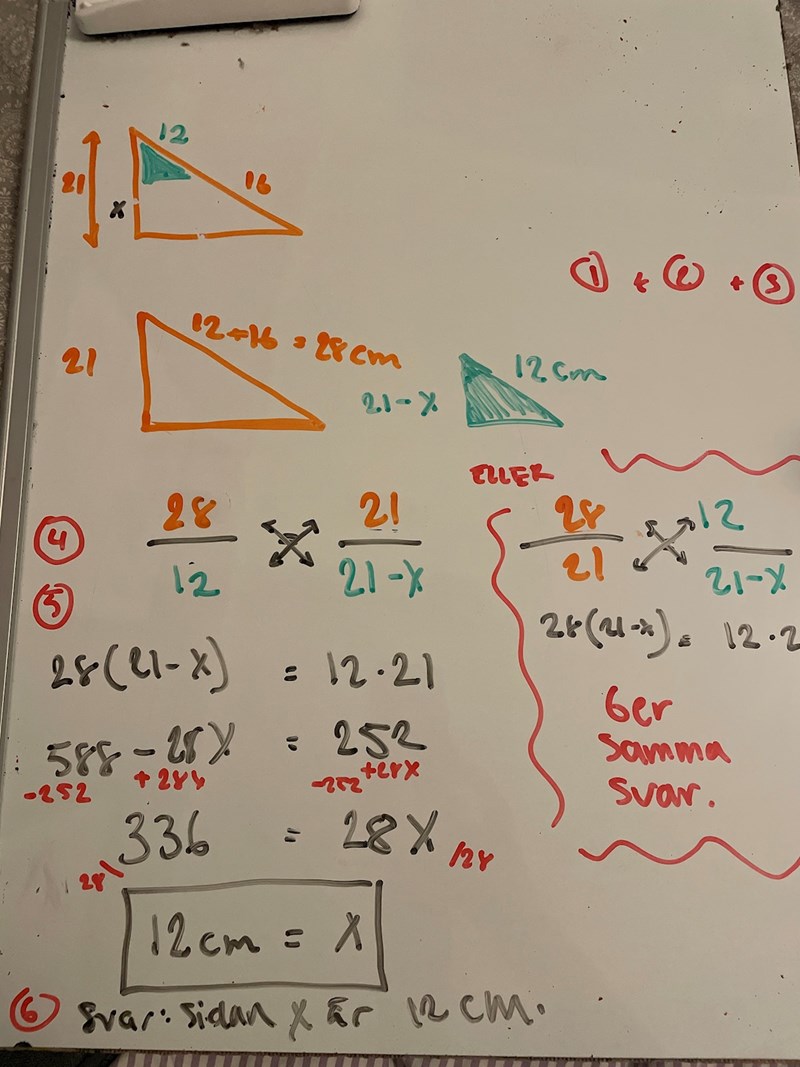 12
21
16
x
① + ② + ③
12+16 = 28 cm
21
12 cm
21-x
ELLER
④ 28/12 21/(21-x)
28/21 12/(21-x)
⑤
28(21-x) = 12·21
28(21-x) = 12·2
588 - 28x = 252
-252 +28x -252 +28x
336 = 28x /28
28\
12 cm = x
Ger
samma
svar.
⑥ Svar: Sidan x är 12 cm.